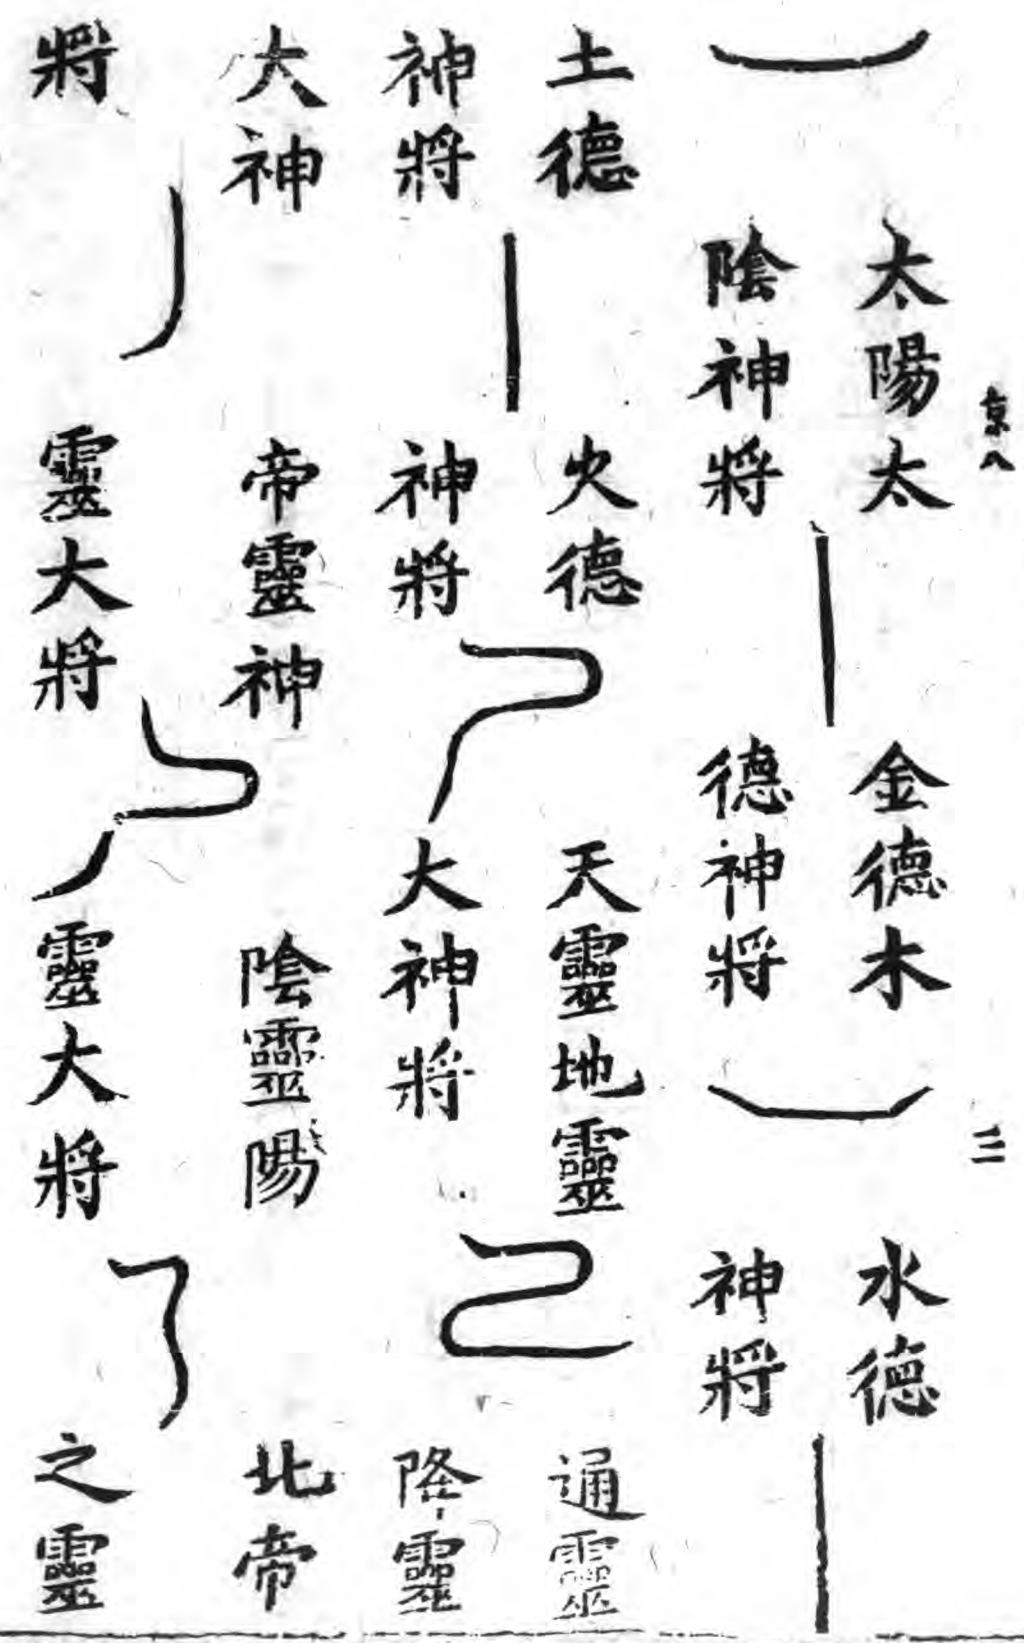 京八
三
太陽太
陰神將
金德木
德神將
水德
神將
土德
神將
火德
神將
天靈地靈
大神將
通靈
降靈
大神
將
帝靈神
靈大將
陰靈陽
靈大將
北帝
之靈